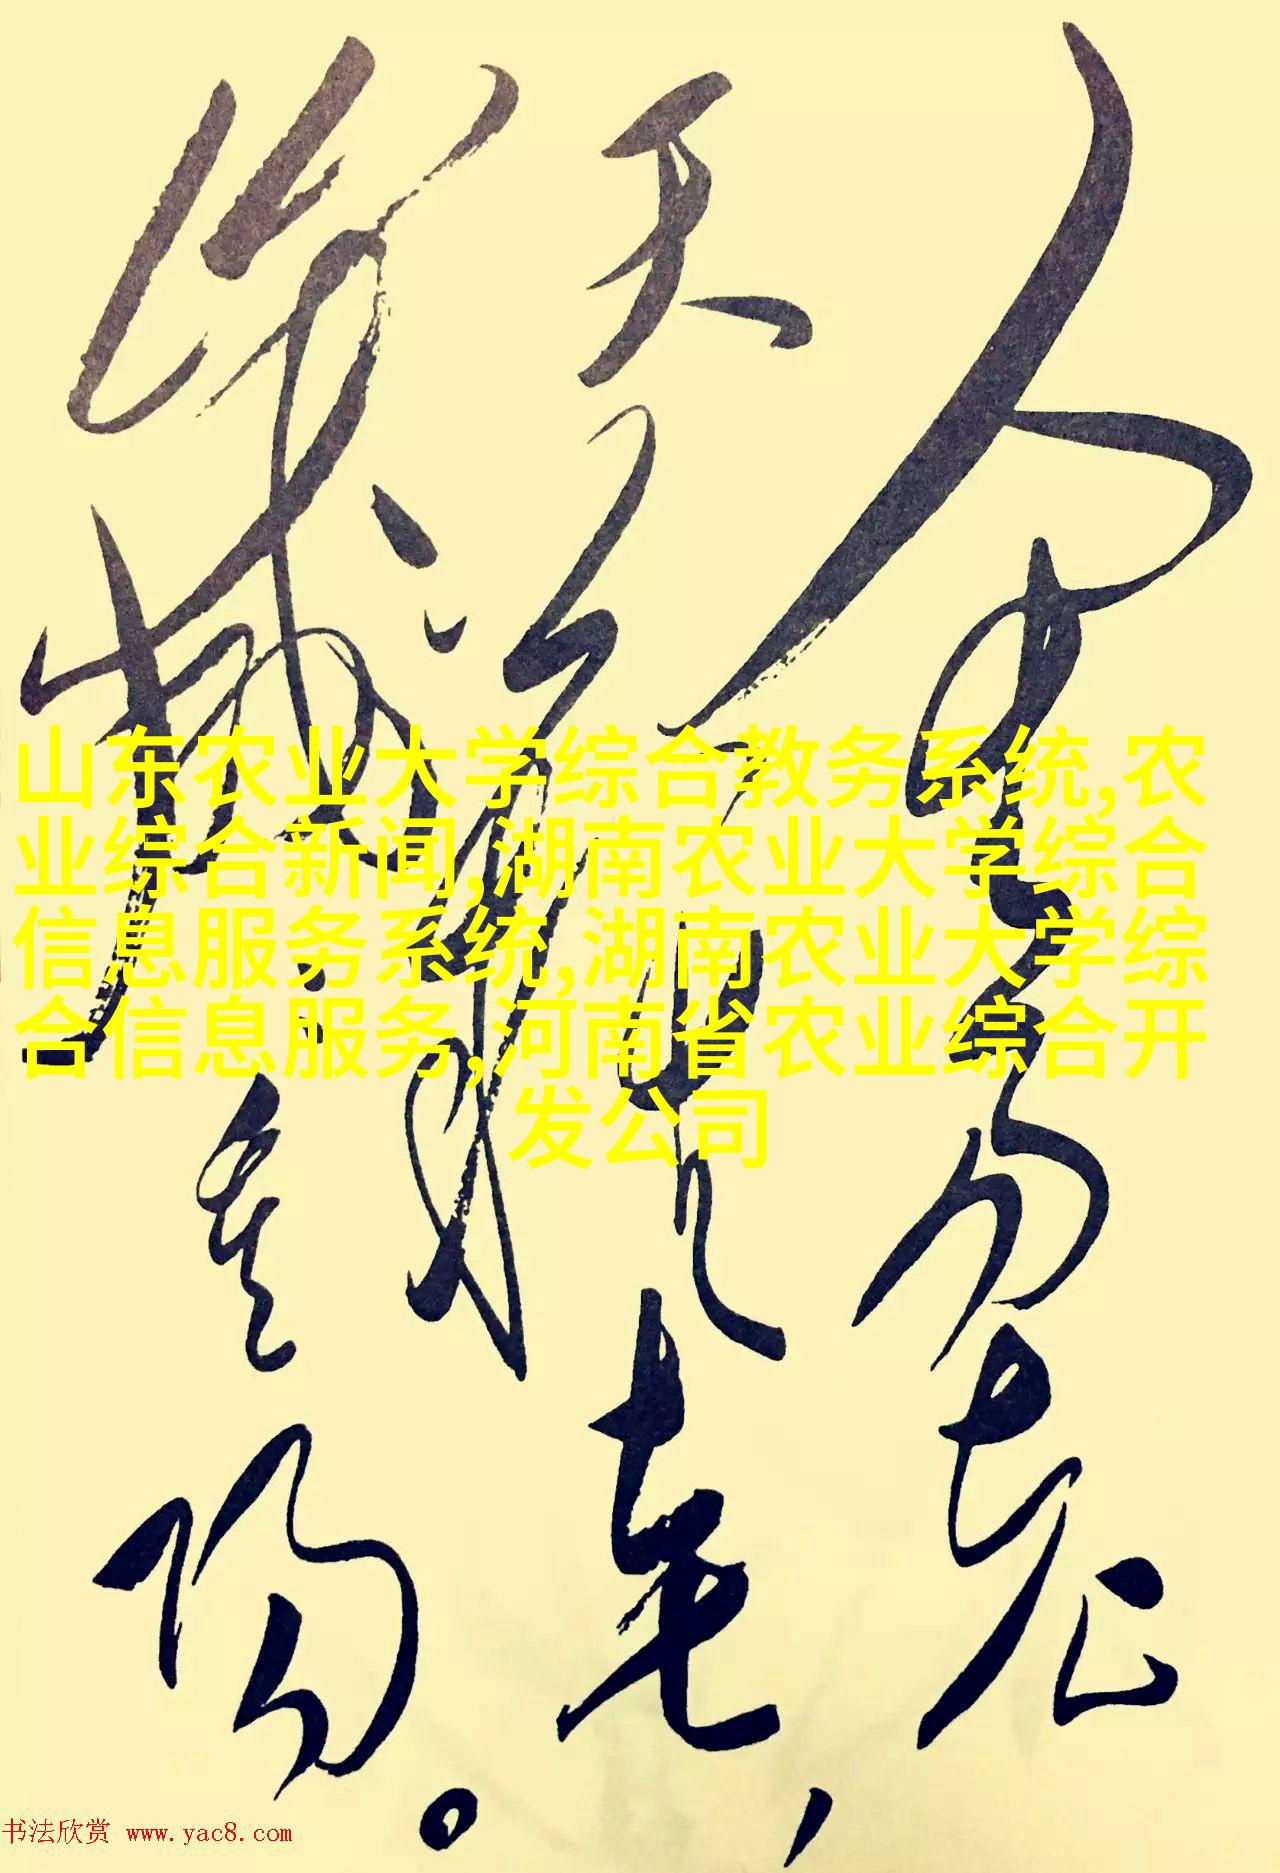 人生易老
天難老，
歲:重陽。
山东农业大学综合教务系统,农
业综合新闻,湖南农业大学综合
信息服务系统,湖南农业大学综
合信息服务,河南省农业综合开
发公司
书法欣赏 www.yac8.com